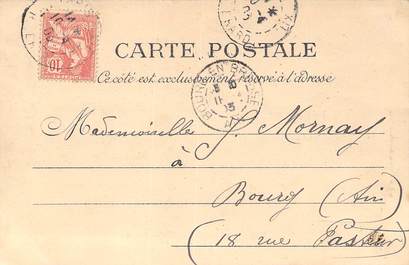 CARTE POSTALE
Ce côté est exclusivement réservé à l'adresse
BOURG-EN-BRESSE
Mademoiselle J. Mornay
à
Bourg (Ain)
(18 rue Pasteur)